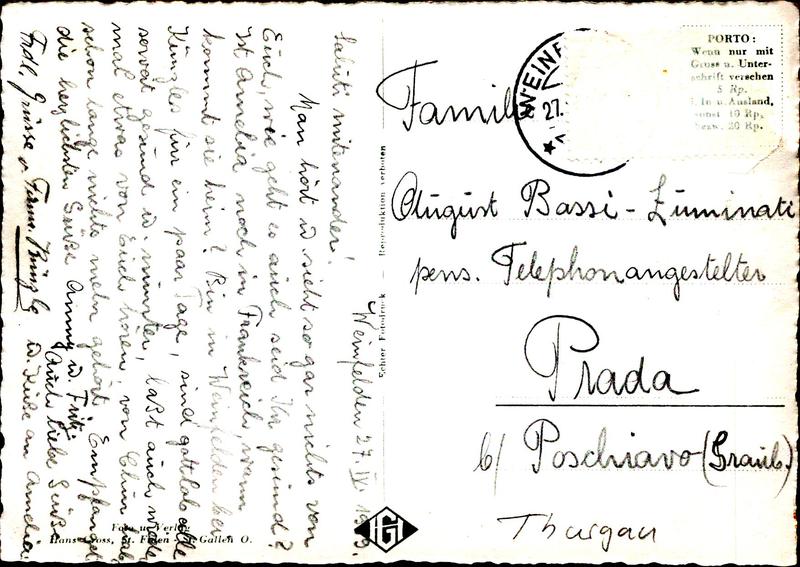 Weinfelden 27. IV. 19
Saluti mitenander!
Man hört u sieht so gar nichts von
Euch, wie geht es auch seid Ihr gesund?
Ist Amelia noch in Frankreich, wann
kommt sie heim? Bin in Weinfelden bei
Künzles für ein paar Tage, sind gottlob alle
gesund u. munter, laßt auch wieder
mal etwas von Euch hören, von Chur hab
schon lange nichts mehr gehört. Empfanget
die herzlichsten Grüße Anny u. Fritz
Auch liebe Grüße
Frdl. Grüsse Künzle u. Küsse an Amelia
Echter Fotodruck - Reproduktion verboten
Foto u. Verlag
Hans Gross, St. Fiden - St. Gallen O.
HG
WEINF
27.
PORTO:
Wenn nur mit
Gruss u. Unter-
schrift versehen
5 Rp.
In u. Ausland,
sonst 10 Rp.
bezw. 20 Rp.
Famil
August Bassi-Zuminati
pens. Telephonangestelter
Prada
b/ Poschiavo (Graub.)
Thurgau